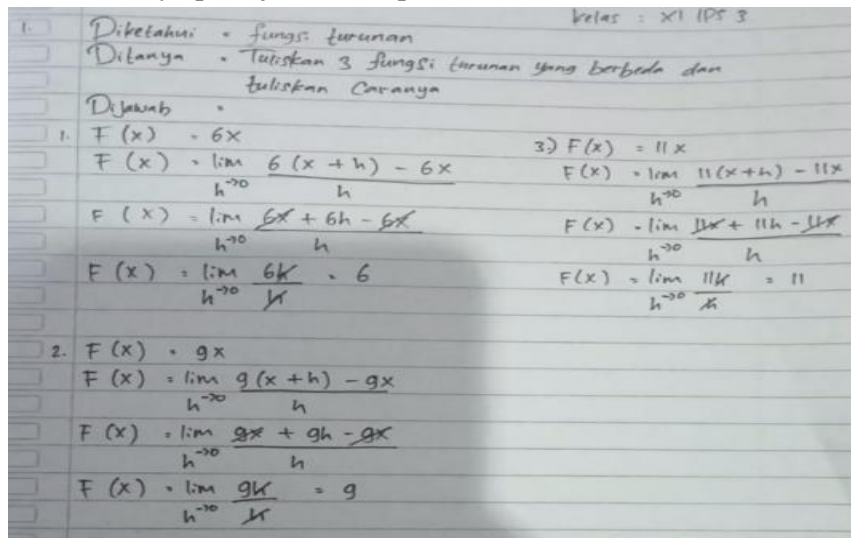 kelas : XI IPS 3
1. Diketahui = fungsi turunan
Ditanya = Tuliskan 3 fungsi turunan yang berbeda dan
tuliskan Caranya
Dijawab =
1. F (x) = 6x
F (x) = lim h→0 6 (x + h) - 6x / h
F (x) = lim h→0 6x + 6h - 6x / h
F (x) = lim h→0 6h / h = 6
2. F (x) = 9x
F (x) = lim h→0 9 (x + h) - 9x / h
F (x) = lim h→0 9x + 9h - 9x / h
F (x) = lim h→0 9h / h = 9
3.) F(x) = 11x
F(x) = lim h→0 11(x+h) - 11x / h
F(x) = lim h→0 11x + 11h - 11x / h
F(x) = lim h→0 11h / h = 11